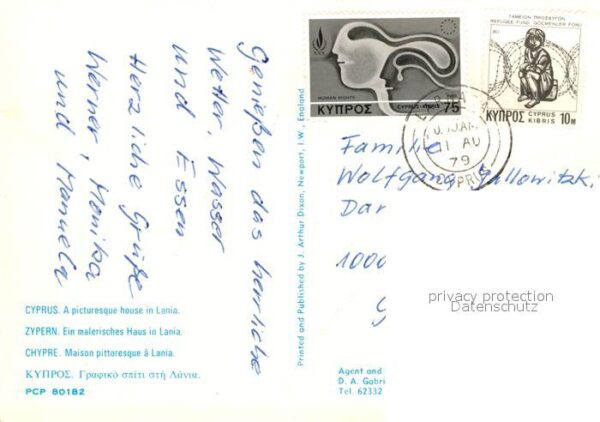 Genießen das herrliche
Wetter, Wasser
und Essen
Herzliche Grüße
Werner, Monika
und Manuela
CYPRUS. A picturesque house in Lania.
ZYPERN. Ein malerisches Haus in Lania.
CHYPRE. Maison pittoresque à Lania.
ΚΥΠΡΟΣ. Γραφικό σπίτι στή Λάνια.
PCP 80182
Printed and Published by J. Arthur Dixon, Newport, I.W., England
HUMAN RIGHTS
ΚΥΠΡΟΣ CYPRUS-KIBRIS 75
ΤΑΜΕΙΟΝ ΠΡΟΣΦΥΓΩΝ
REFUGEE FUND GÖCMENLER FONU
ΚΥΠΡΟΣ CYPRUS KIBRIS 10M
11 AU
79
Familie
Wolfgang
Dar
1000
privacy protection
Datenschutz
Agent and
D. A. Gabri
Tel. 62332